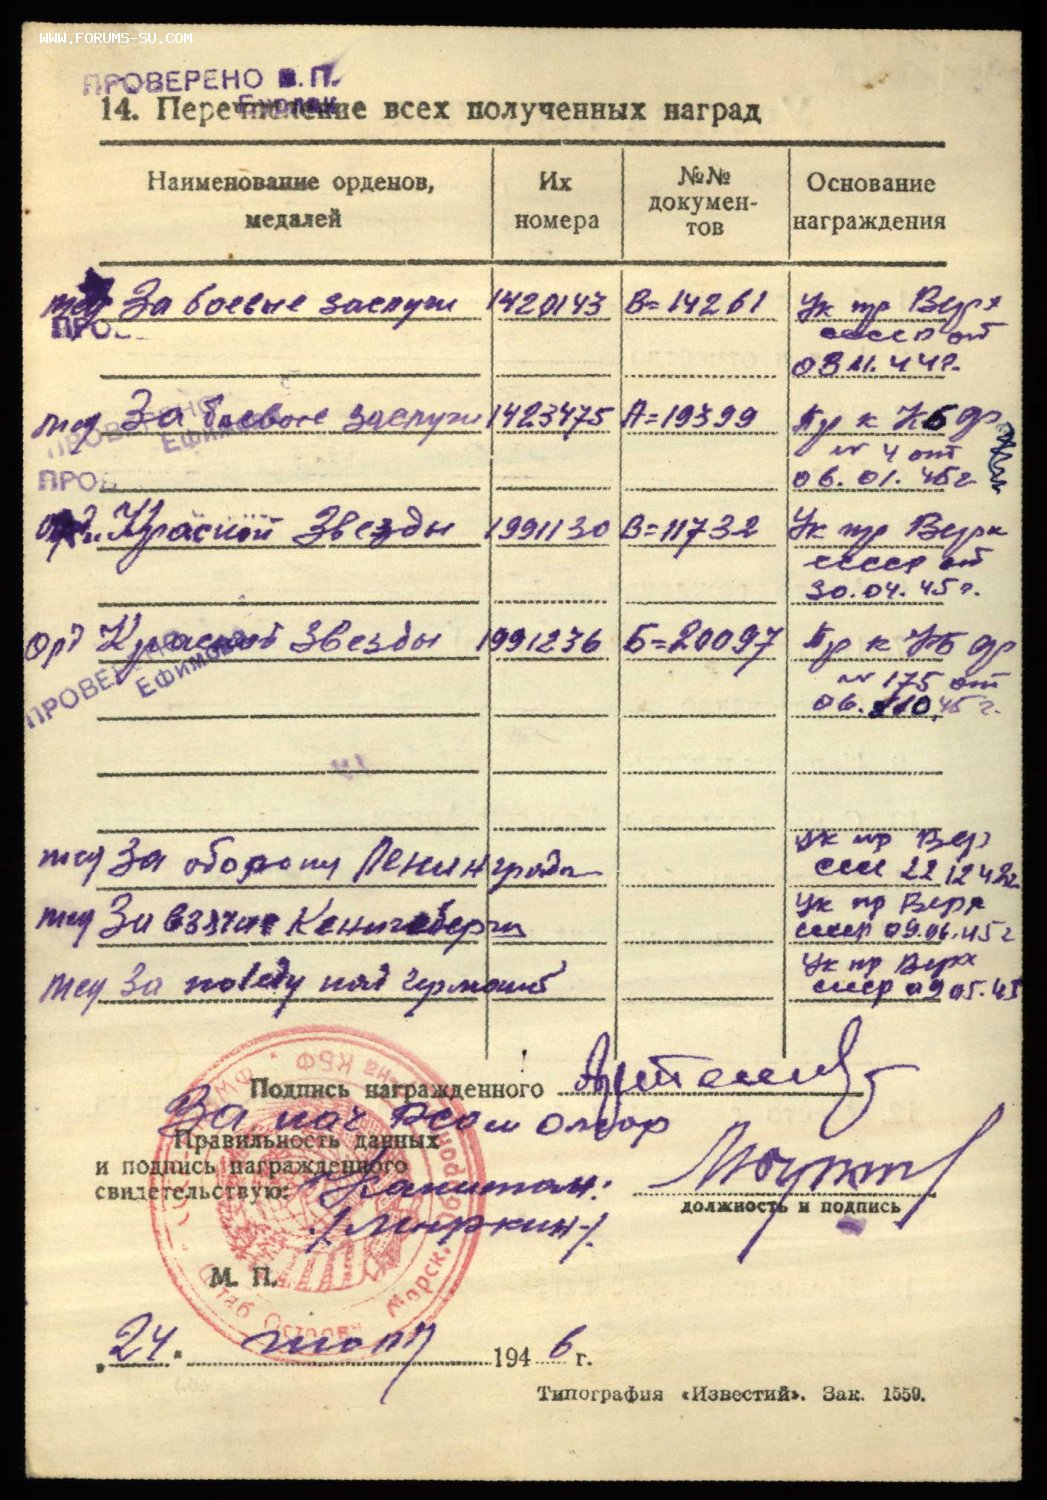 WWW.FORUMS-SU.COM
ПРОВЕРЕНО
14. Перечисление всех полученных наград
Наименование орденов, медалей
Их номера
№№ докумен-тов
Основание награждения
мед За боевые заслуги 1420143 В=14261 Ук пр Верх
СССР от
03.11.44г.
ПРО
мед За боевые заслуги 1423475 А=19399 Пр к КБФ
№ 4 от
06.01.45г
ПРОВЕРЕНО
ЕФИМ
ПРОВ
орд. Красной Звезды 1991130 В=11732 Ук пр Верх
СССР от
30.04.45г.
орд Красной Звезды 1991236 Б=20097 Пр к КБФ
№ 175 от
06. 10.45г.
ПРОВЕРЕНО
ЕФИМОВ
мед За оборону Ленинграда Ук пр Вер
22.12.42г
мед За взятие Кенигсберга Ук пр Верх
СССР 09.06.45г
мед За победу над Германией Ук пр Верх
СССР 09.05.45
Подпись награжденного
За нач
Правильность данных
и подпись награжденного
свидетельствую: Капитан:
должность и подпись
М. П.
Штаб Островн Морск. Оборон КБФ
„24“ 1946 г.
Типография «Известий». Зак. 1559.